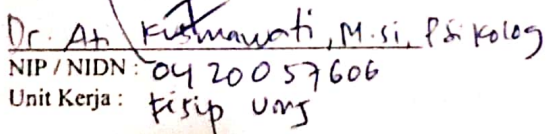 Dr. Ati Kusmawati, M.si, Psikolog
NIP / NIDN : 0420057606
Unit Kerja : Fisip UMJ